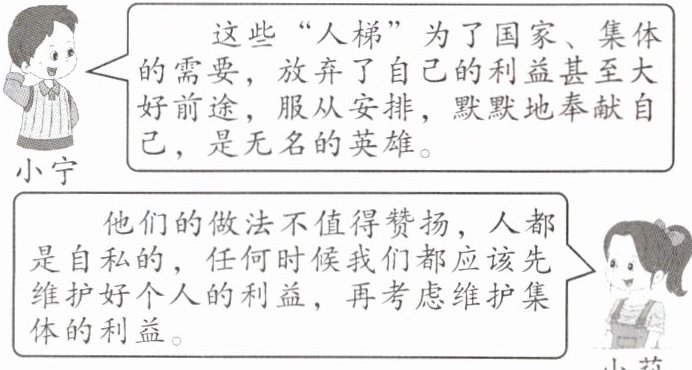 这些“人梯”为了国家、集体
的需要，放弃了自己的利益甚至大
好前途，服从安排，默默地奉献自
己，是无名的英雄。
小宁
他们的做法不值得赞扬，人都
是自私的，任何时候我们都应该先
维护好个人的利益，再考虑维护集
体的利益。